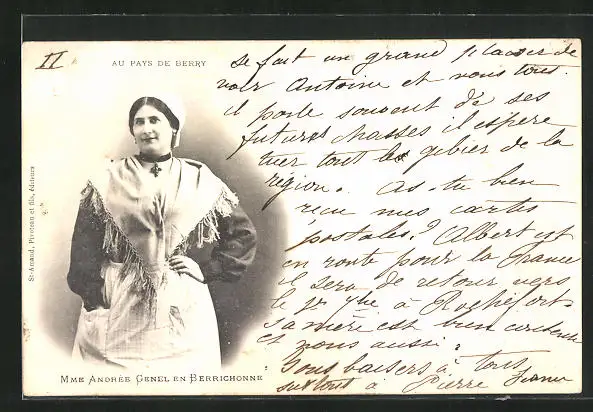 II
AU PAYS DE BERRY
se fait un grand plaisir de
voir Antoine et vous tous.
il parle souvent de ses
futures chasses il espère
tuer tout le gibier de la
région. As-tu bien
reçu mes cartes
postales? Albert est
en route pour la France
il sera de retour vers
le à Rochefort
sa mère est bien contente
et nous aussi.
Bons baisers à tous
surtout à Pierre
St-Amand, Pivoteau et fils, éditeurs
MME ANDRÉE GENEL EN BERRICHONNE